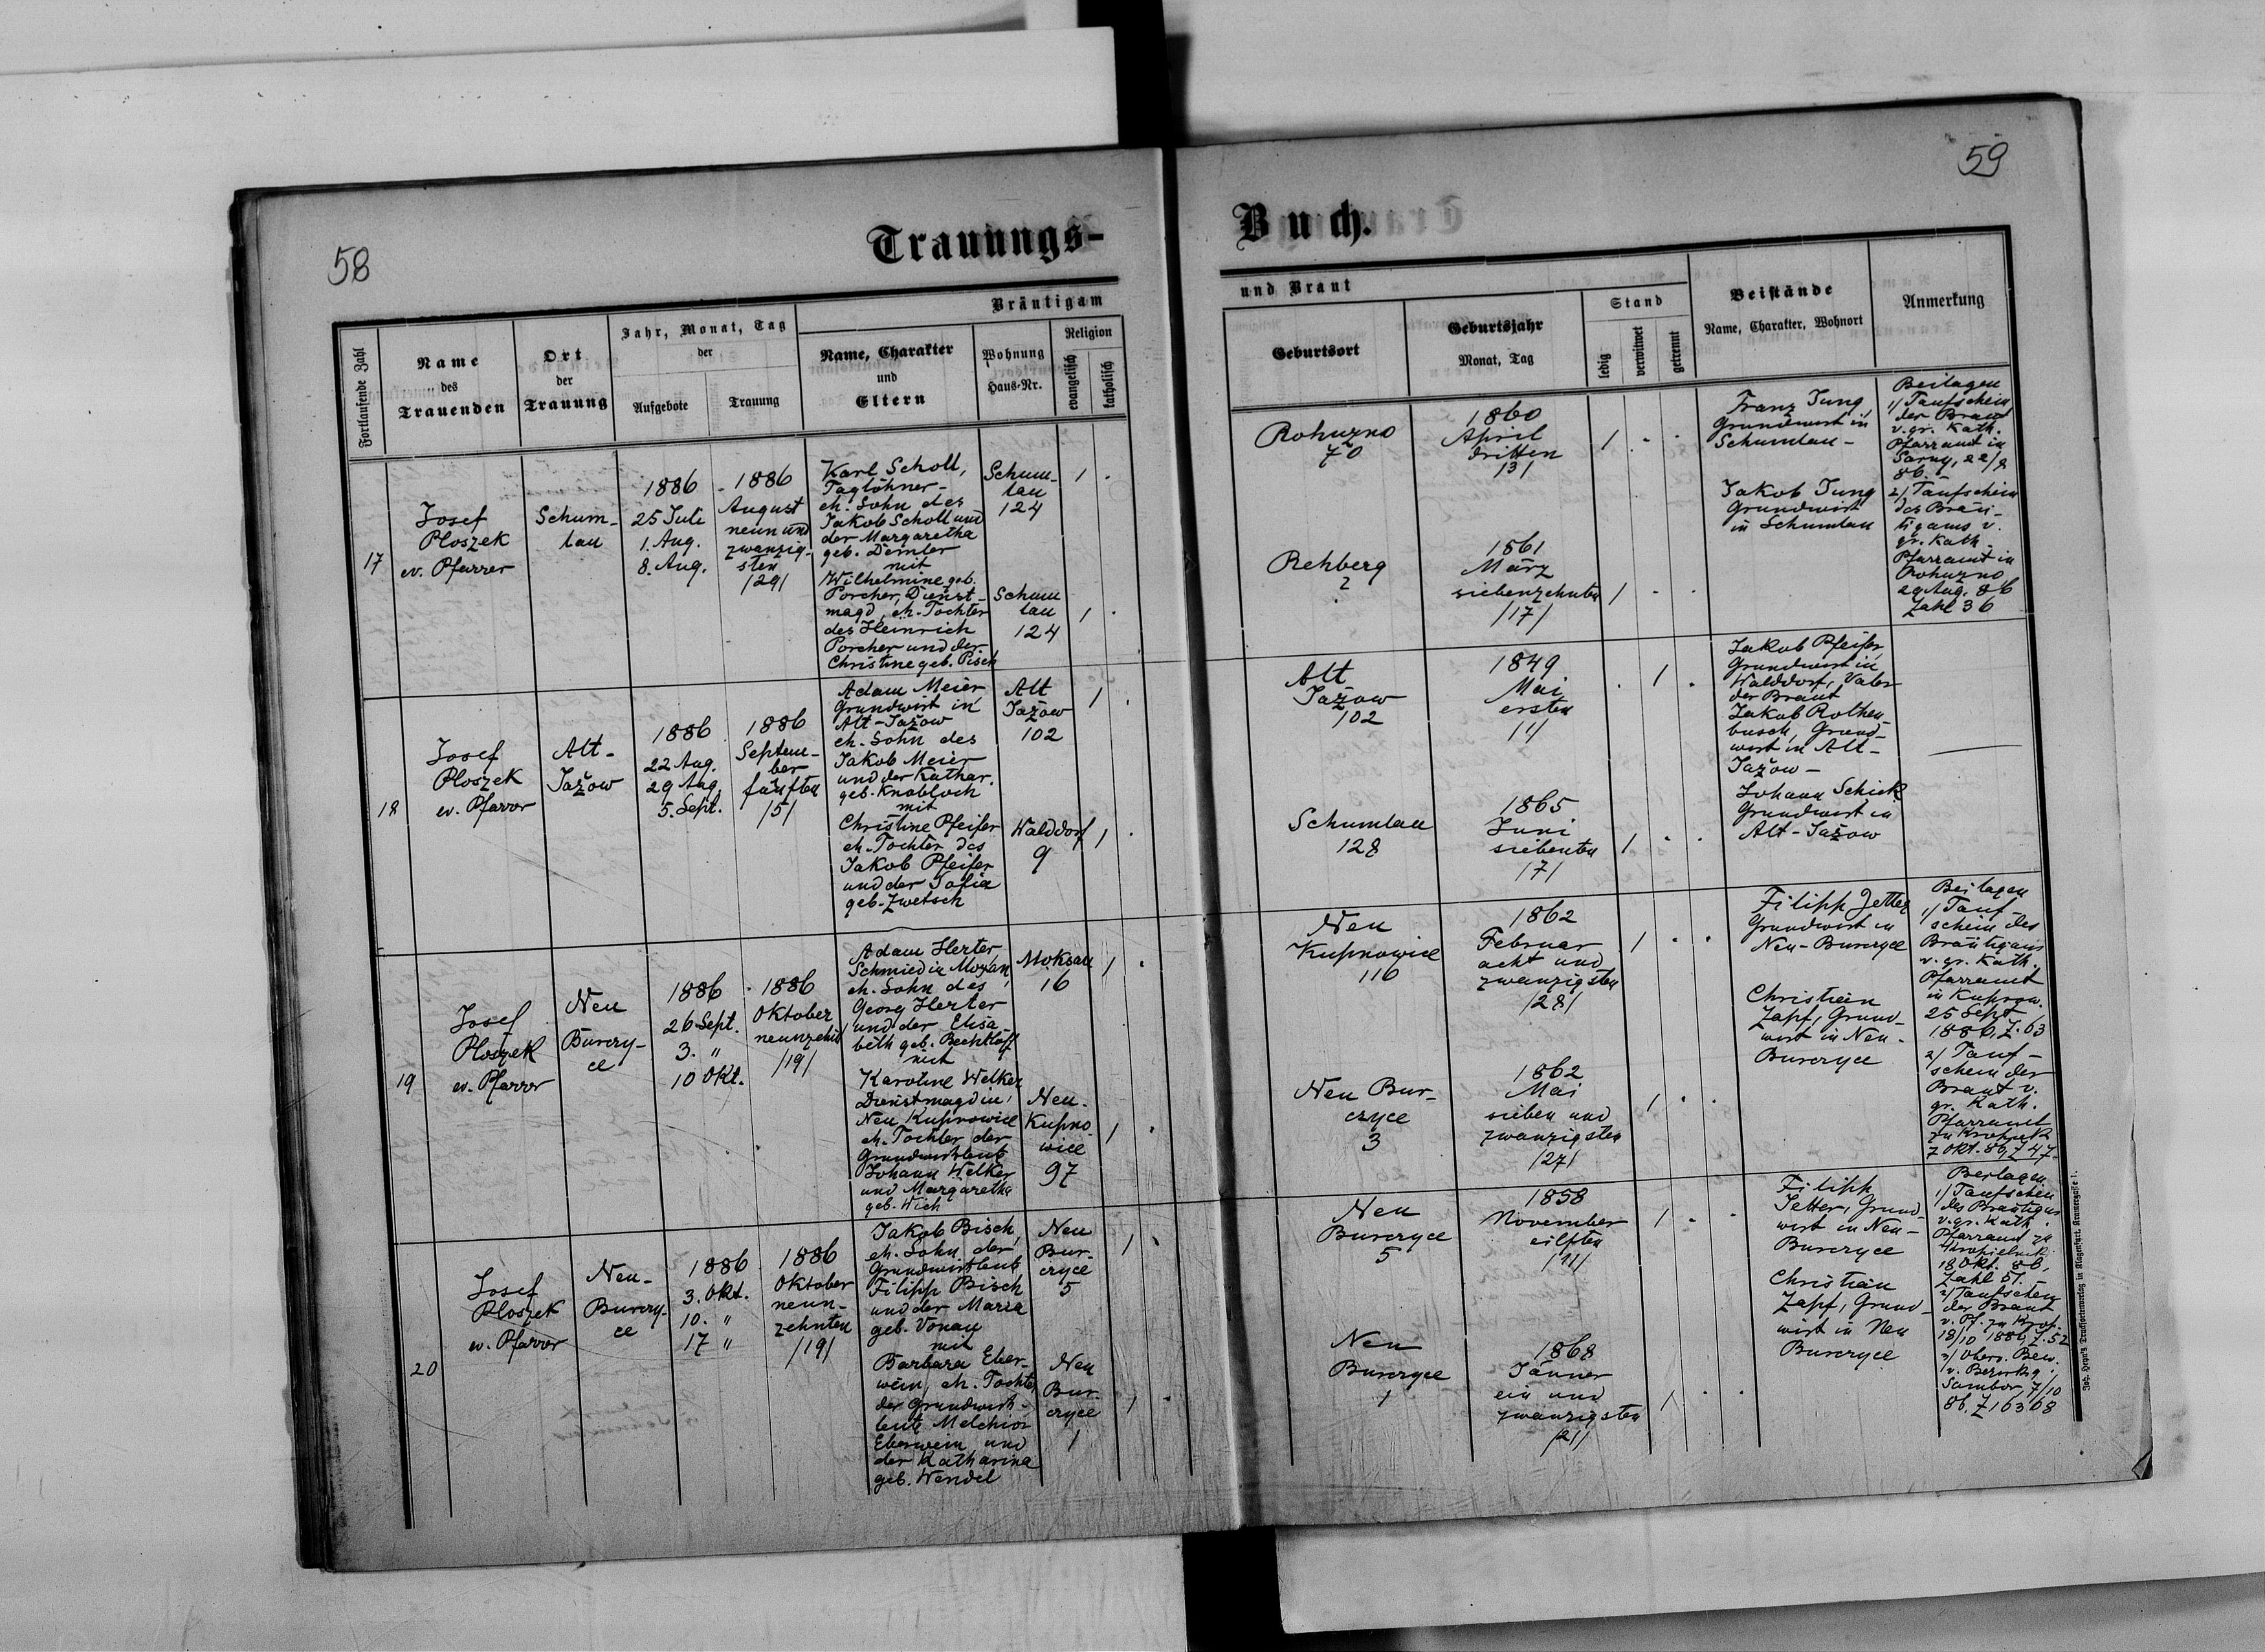 58
Trauungs-
Bräutigam
Fortlaufende Zahl
Name
des
Trauenden
Ort
der
Trauung
Jahr, Monat, Tag
der
Aufgebote
Trauung
Name, Charakter
und
Eltern
Wohnung
Haus-Nr.
Religion
evangelisch
katholisch
17
Josef
Ploszek
ev. Pfarrer
Schum-
lau
1886
25 Juli
1. Aug.
8. Aug.
1886
August
neun und
zwanzig-
sten
/29/
Karl Scholl,
Taglöhner-
eh. Sohn des
Jakob Scholl und
der Margaretha
geb. Demler
mit
Wilhelmine geb.
Porcher, Dienst-
magd, eh. Tochter
des Heinrich
Porcher und der
Christine geb. Pisch
Schum-
lau
124
1 .
Schum
lau
124
1 .
18
Josef
Ploszek
ev. Pfarrer
Alt-
Jažow
1886
22 Aug.
29 Aug.
5. Sept.
1886
Septem-
ber
fünften
/5/
Adam Meier
Grundwirt in
Alt-Jažow
eh. Sohn des
Jakob Meier
und der Kathar.
geb. Knobloch
mit
Christine Pfeifer
eh. Tochter des
Jakob Pfeifer
und der Sofia
geb. Zwetsch
Alt
Jažow
102
1 .
Walddorf
9
1 .
19
Josef
Ploszek
ev. Pfarrer
Neu
Burczy-
ce
1886
26 Sept.
3. "
10 Okt.
1886
Oktober
neunzehnt
/19/
Adam Herter,
Schmied in
eh. Sohn des
Georg Herter
und der Elisa-
beth geb. Bechtloff
mit
Karoline Welker
Dienstmagd in
Neu Kupnowice
eh. Tochter der
Grundwirtsleute
Johann Welker
und Margaretha
geb. Wich
Moksau
16
1 .
Neu-
Kupno
wice
97
1 .
20
Josef
Ploszek
ev. Pfarrer
Neu-
Burczy-
ce
1886
3. Okt.
10. "
17 "
1886
Oktober
neun-
zehnten
/19/
Jakob Bisch,
eh. Sohn der
Grundwirtsleute
Filipp Bisch
und der Maria
geb. Vonau
mit
Barbara Eber-
wein, eh. Tochter
der Grundwirts-
leute Melchior
Eberwein und
der Katharina
geb. Wendel
Neu
Bur-
czyce
5
1 .
Neu
Bur-
czyce
1
1 .
59
Buch.
und Braut
Geburtsort
Geburtsjahr
Monat, Tag
Stand
ledig
verwitwet
getrennt
Beistände
Name, Charakter, Wohnort
Anmerkung
Rohuzno
70
1860
April
dritten
/3/
1 . .
Rehberg
2
1861
März
siebenzehnten
/17/
1 . .
Franz Jung,
Grundwirt in
Schumlau -
Jakob Jung
Grundwirt
in Schumlau
Beilagen
1/ Taufschein
der Braut
v. gr. kath.
Pfarramt in
Sarny, 22/8
86. -
2/ Taufschein
des Bräu-
tigams v.
gr. kath.
Pfarramt in
Rohuzno
29 Aug. 86
Zahl 36
Alt
Jažow
102
1849
Mai
ersten
/1/
. 1 .
Schumlau
128
1865
Juni
siebenten
/7/
1 . .
Jakob Pfeifer
Grundwirt in
Walddorf, Vater
der Braut
Jakob Rothen-
busch, Grund-
wirt in Alt-
Jažow -
Johann Schick
Grundwirt in
Alt-Jažow
Neu
Kupnowice
116
1862
Februar
acht und
zwanzigsten
/28/
1 . .
Neu Bur-
czyce
3
1862
Mai
sieben und
zwanzigsten
/27/
1 . .
Filipp Jetter
Grundwirt in
Neu-Burczyce
Christian
Zapf, Grund-
wirt in Neu-
Burczyce
Beilagen
1/ Tauf-
schein des
Bräutigams
v. gr. kath.
Pfarramt
in Kupnow.
25 Sept
1886, Z. 63
2/ Tauf-
schein der
Braut v.
gr. kath.
Pfarramt
7 Okt. 86, Z 47
Neu
Burczyce
5
1858
November
eilften
/11/
1 . .
Neu
Burczyce
1
1868
Jänner
ein und
zwanzigsten
/21/
1 . .
Filipp
Jetter, Grund-
wirt in Neu-
Burczyce
Christian
Zapf, Grund-
wirt in Neu
Burczyce
Beilagen
1/ Taufschein
des Bräutigams
v. gr. kath.
Pfarramt zu
18 Okt. 86,
Zahl 51. -
2/ Taufschein
der Braut
v. Pf. zu Krop.
18/10 1886, Z. 52
3/ Oberv. Bew.
v. Bezirksg.
Sambor 7/10
86. Z 16368